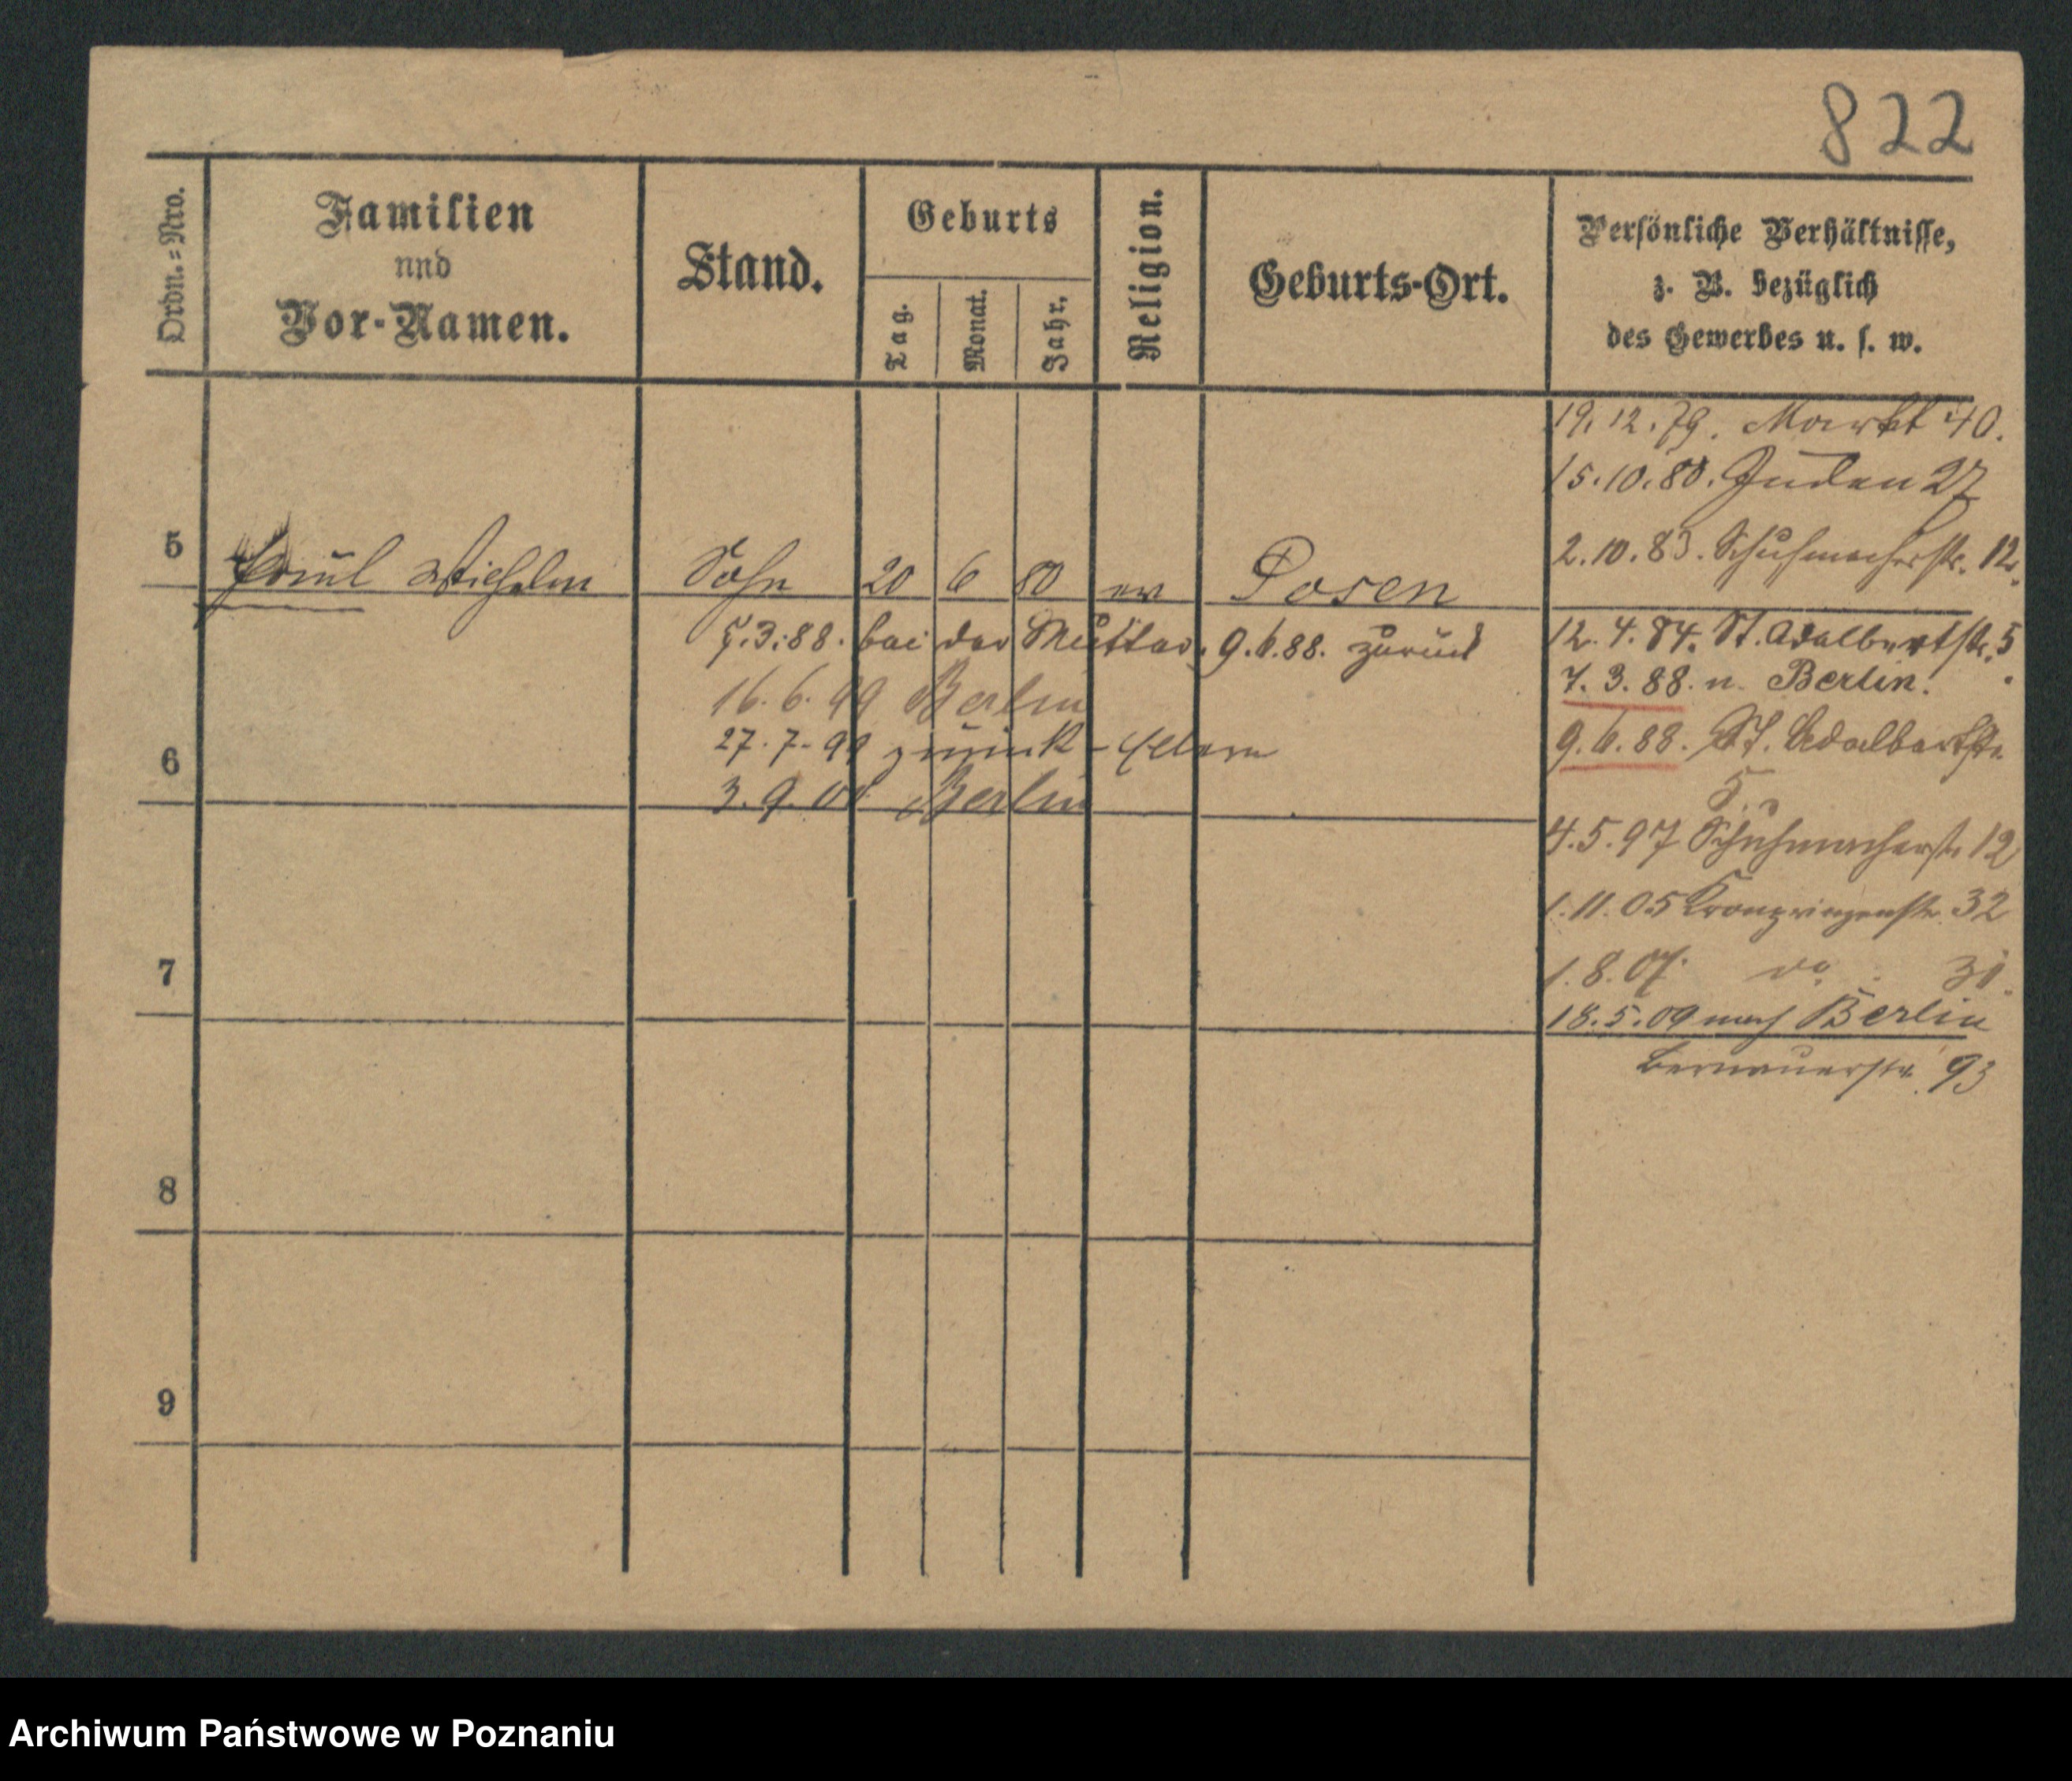 822
Ordn.=Nro.
Familien
und
Vor-Namen.
Stand.
Geburts
Tag.
Monat.
Jahr.
Religion.
Geburts-Ort.
Persönliche Verhältnisse,
z. B. bezüglich
des Gewerbes u. s. w.
19.12.79. Markt 40.
15.10.80. Juden 27
2.10.83. Schuhmacherstr. 12.
5 Paul Wilhelm Sohn 20 6 80 ev Posen
12.4.84. St. Adalbertstr. 5
7.3.88. bei der Mutter. 9.6.88. zurück
7.3.88. n. Berlin.
16.6.99 Berlin
9.6.88. St. Adalbertstr.
5.
27.7.99 zurück - Eltern
6
3.9.00 Berlin
4.5.97 Schuhmacherstr. 12
1.11.05 Kronprinzenstr. 32
7
1.8.07. do. 31.
18.5.09 nach Berlin
Bernauerstr. 93
8
9
Archiwum Państwowe w Poznaniu